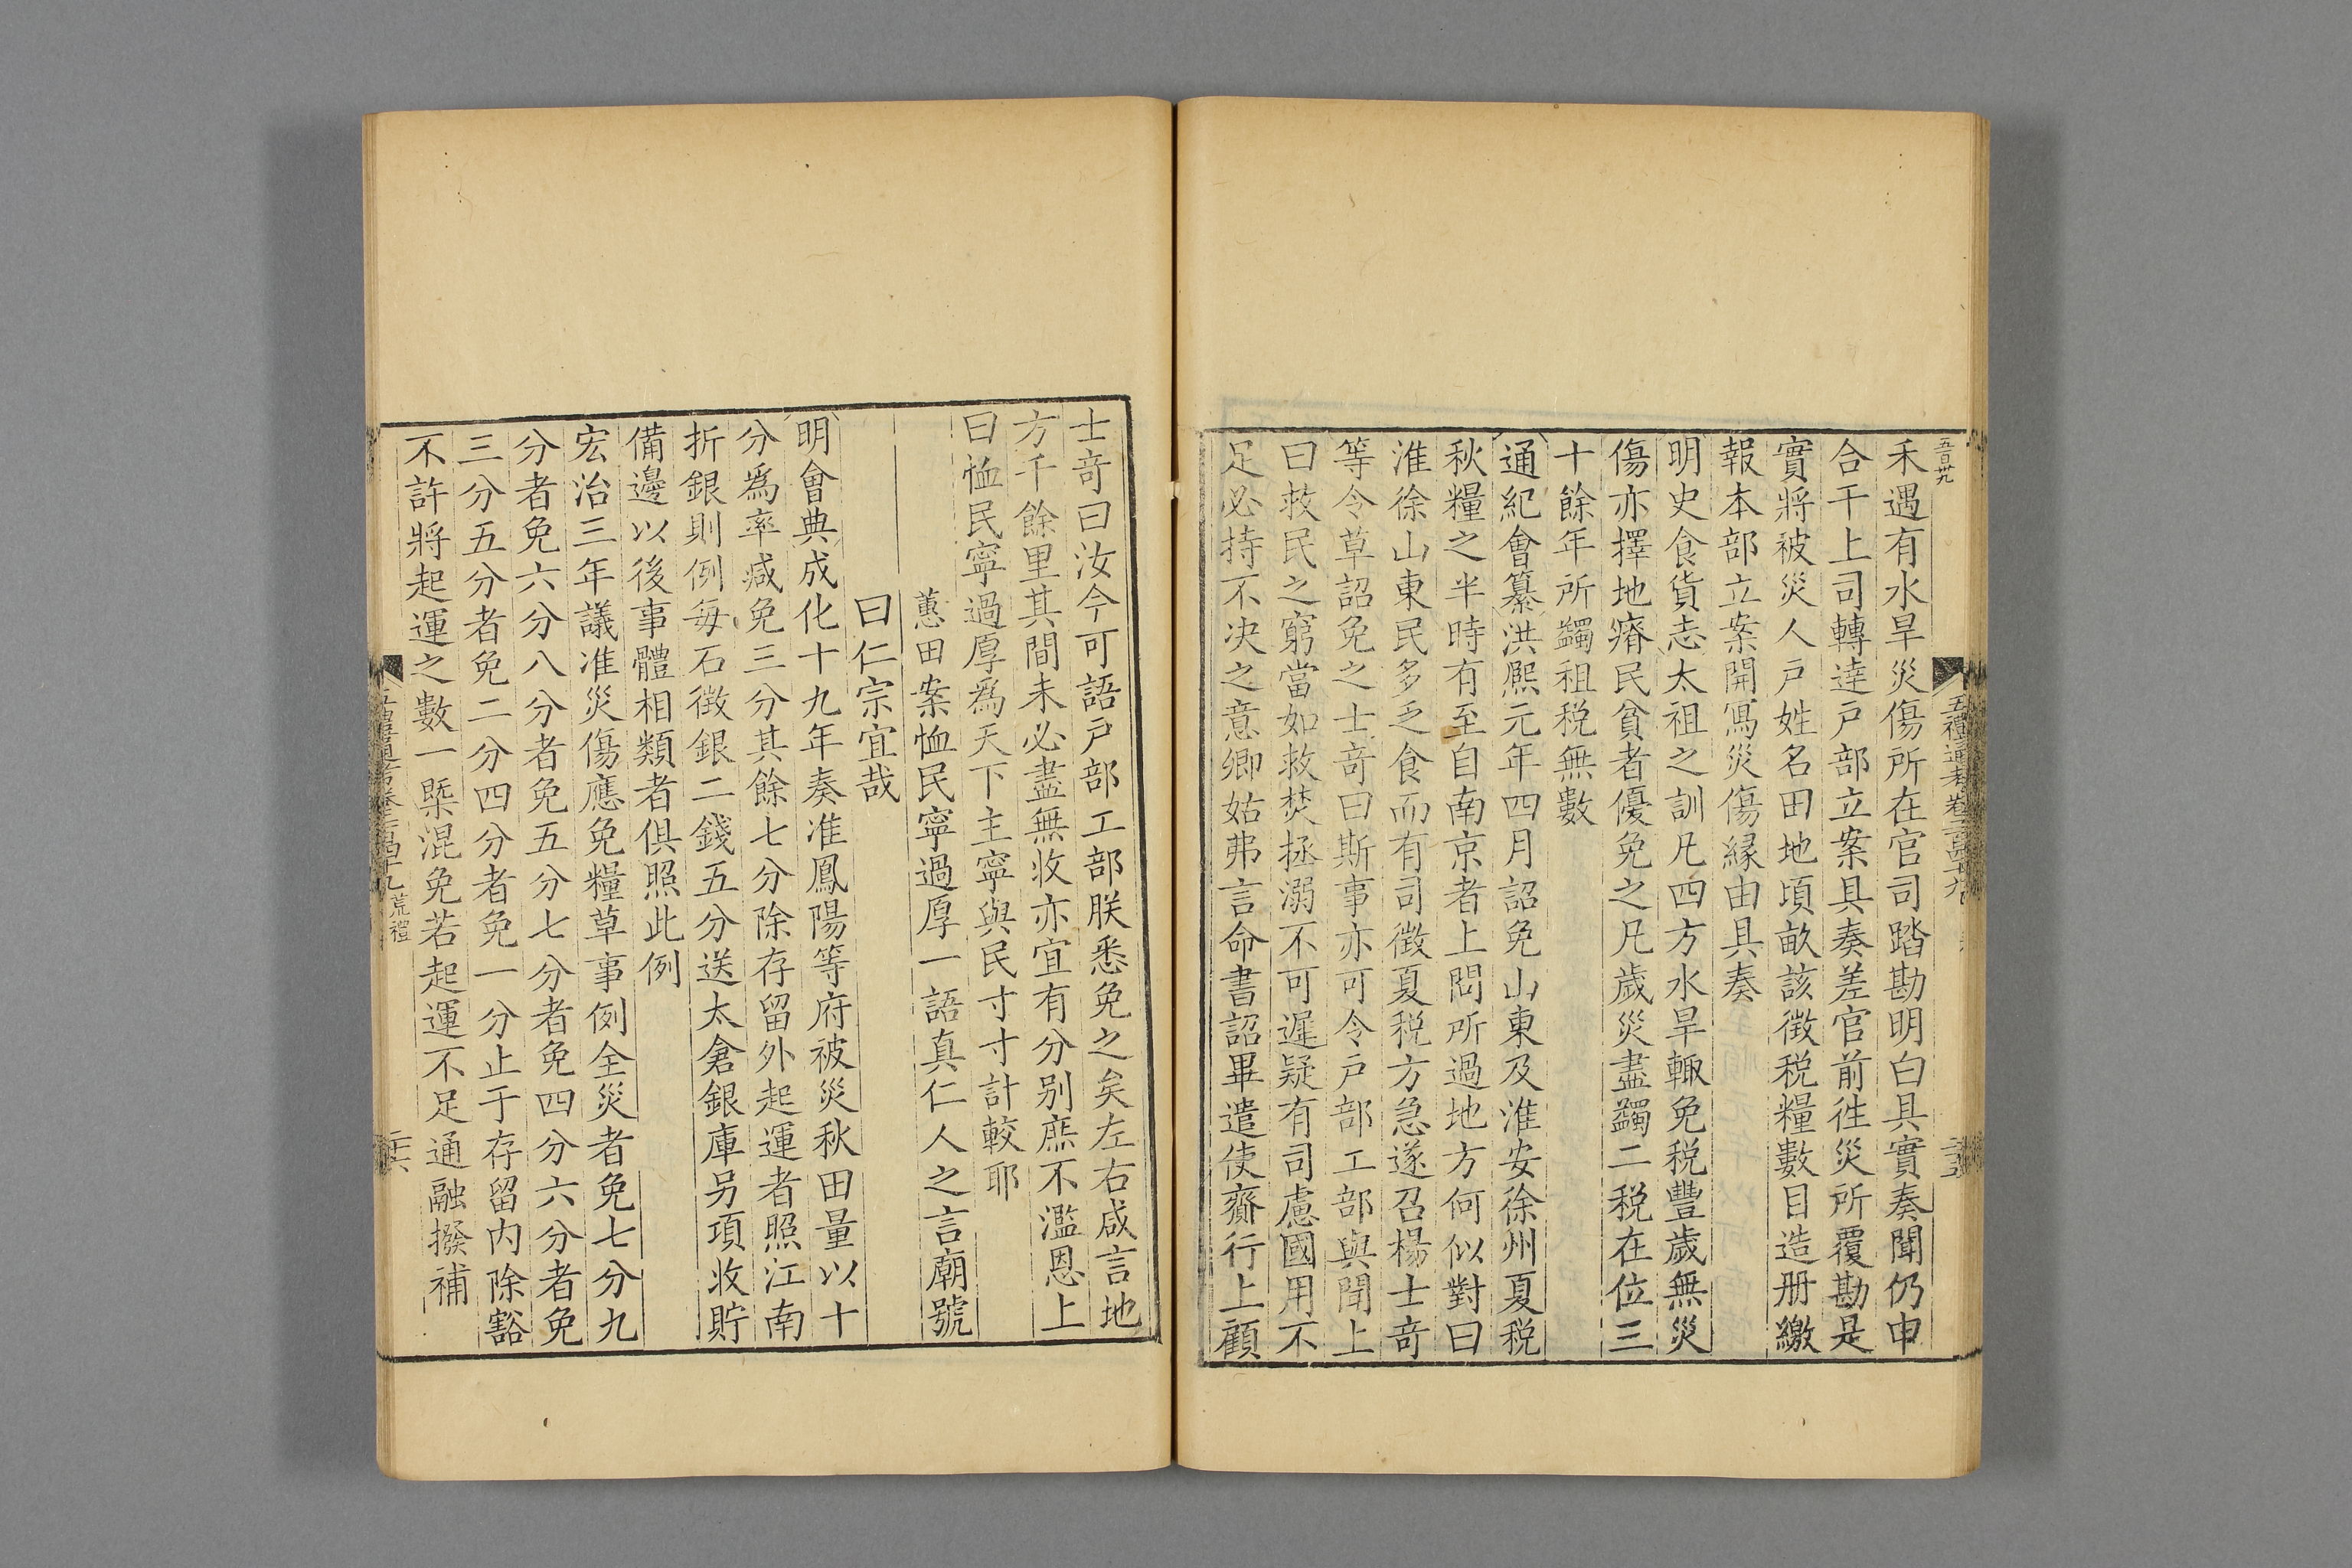 五百卅九
禾遇有水旱災傷所在官司踏勘明白具實奏聞仍申
合干上司轉達戸部立案具奏差官前徃災所覆勘是
實將被災人戸姓名田地項畝該徴税糧數目造册繳
報本部立案開冩災傷縁由具奏
明史食貨志太祖之訓凡四方水旱輙免税豐歲無災
傷亦擇地瘠民貧者優免之凡歲災盡蠲二税在位三
十餘年所蠲租税無數
通紀會纂洪熈元年四月詔免山東及淮安徐州夏税
秋糧之半時有至自南京者上問所過地方何似對曰
淮徐山東民多乏食而有司徴夏税方急遂召楊士竒
等令草詔免之士竒曰斯事亦可令戸部工部與聞上
曰救民之窮當如救焚拯溺不可遲疑有司慮國用不
足必持不决之意卿姑弗言命書詔畢遣使齎行上顧
士竒曰汝今可語戸部工部朕悉免之矣左右咸言地
方千餘里其間未必盡無收亦宜有分别庶不濫恩上
曰恤民寧過厚爲天下主寧與民寸寸計較耶
蕙田案恤民寧過厚一語真仁人之言廟號
曰仁宗宜哉
明會典成化十九年奏准鳳陽等府被災秋田量以十
分爲率减免三分其餘七分除存留外起運者照江南
折銀則例毎石徴銀二錢五分送太倉銀庫另項收貯
備邊以後事體相類者俱照此例
宏治三年議准災傷應免糧草事例全災者免七分九
分者免六分八分者免五分七分者免四分六分者免
三分五分者免二分四分者免一分止于存留内除豁
不許將起運之數一槩混免若起運不足通融撥補
五禮通考卷二百四十九 荒禮 二六